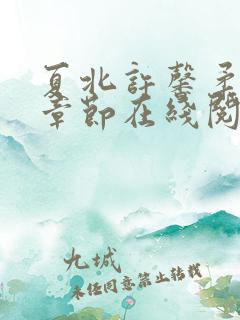 夏北許馨柔
章節在綫閱
九城
未经同意禁止转载